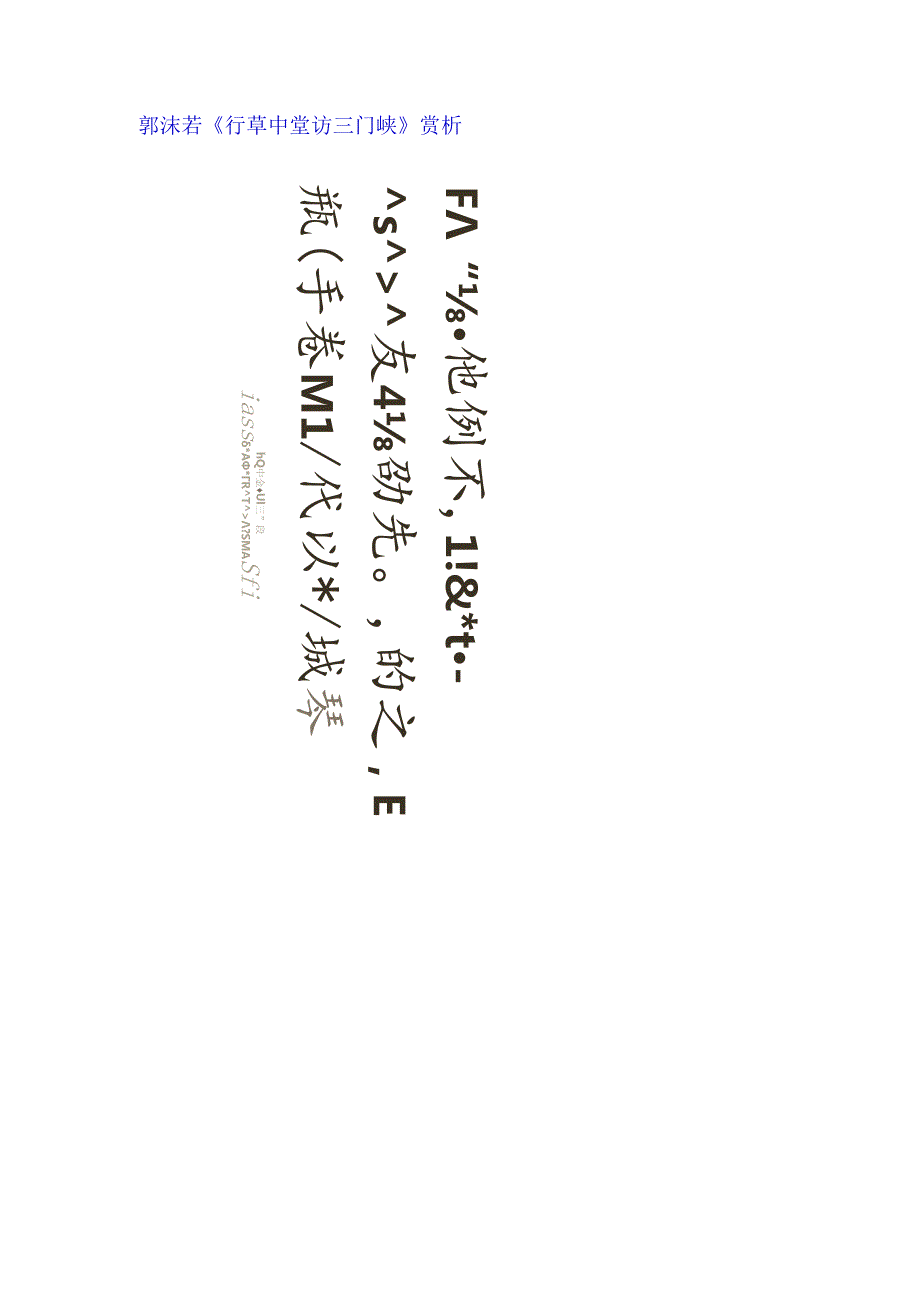 郭沫若《行草中堂访三门峡》赏析
FΛ “⅛•他例不, 1!&*t•-
^s^>^友4⅛劭先。,的之, E
瓶(手卷M1/代以*/城琴
hQ中金♦UI三”段
iassδ*AΦ*ΓR^T^>Λ?SMASfi